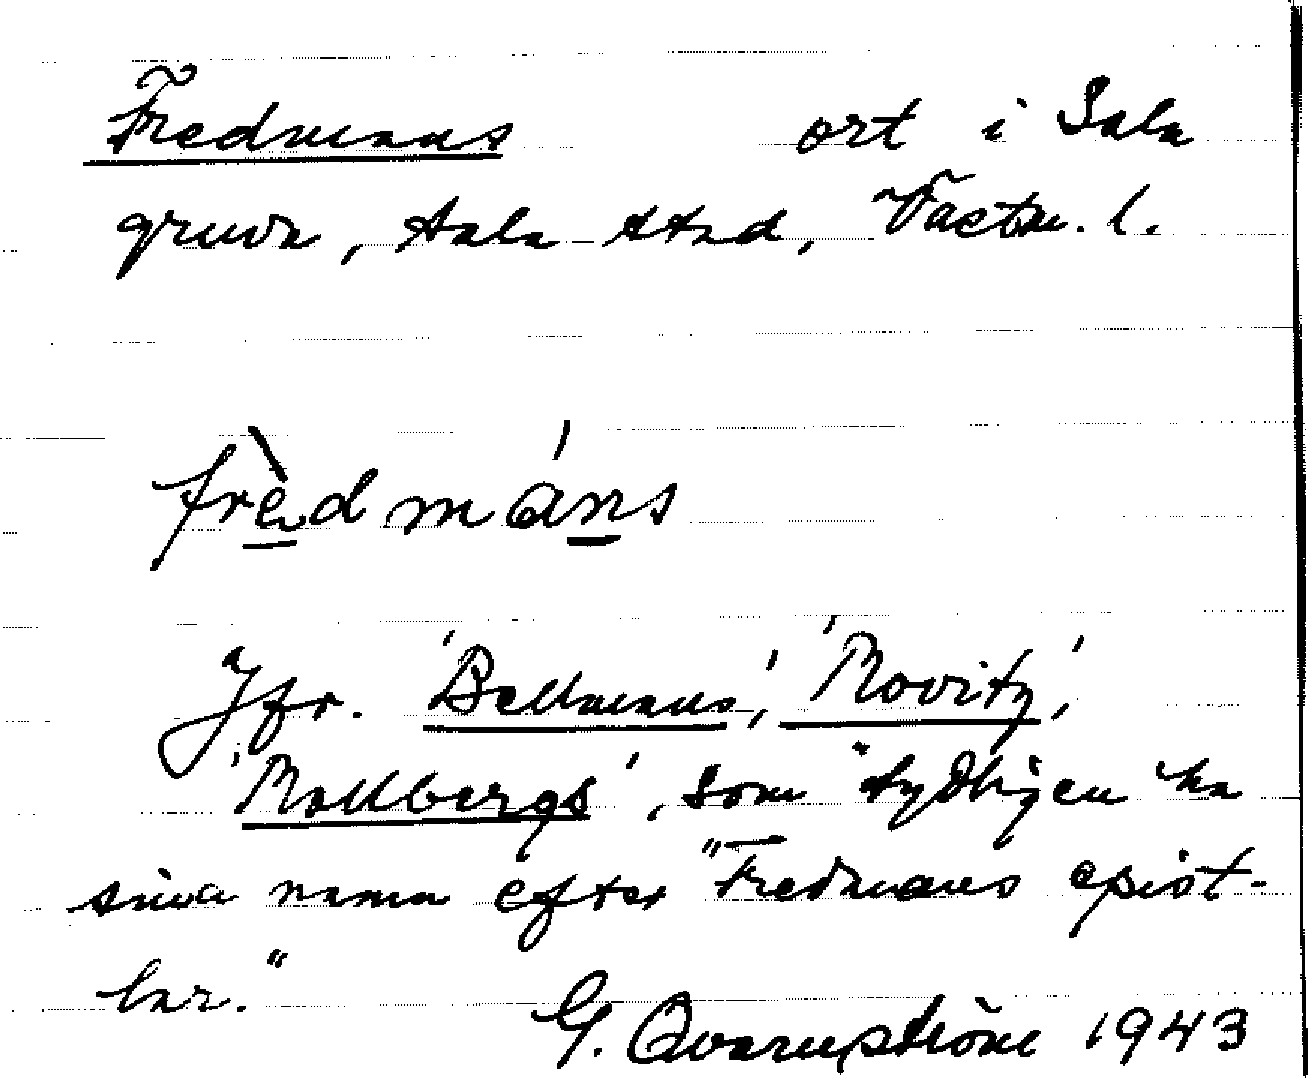 Fredmans ort i Sala
gruva, Sala stad, Västm. l.
frèdmáns
Jfr. 'Bellmans', 'Movitz',
'Mollbergs', som tydligen ha
sina namn efter "Fredmans epist-
lar."
G. Qvarnström 1943